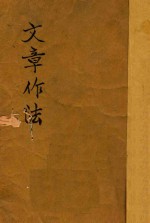 文章作法